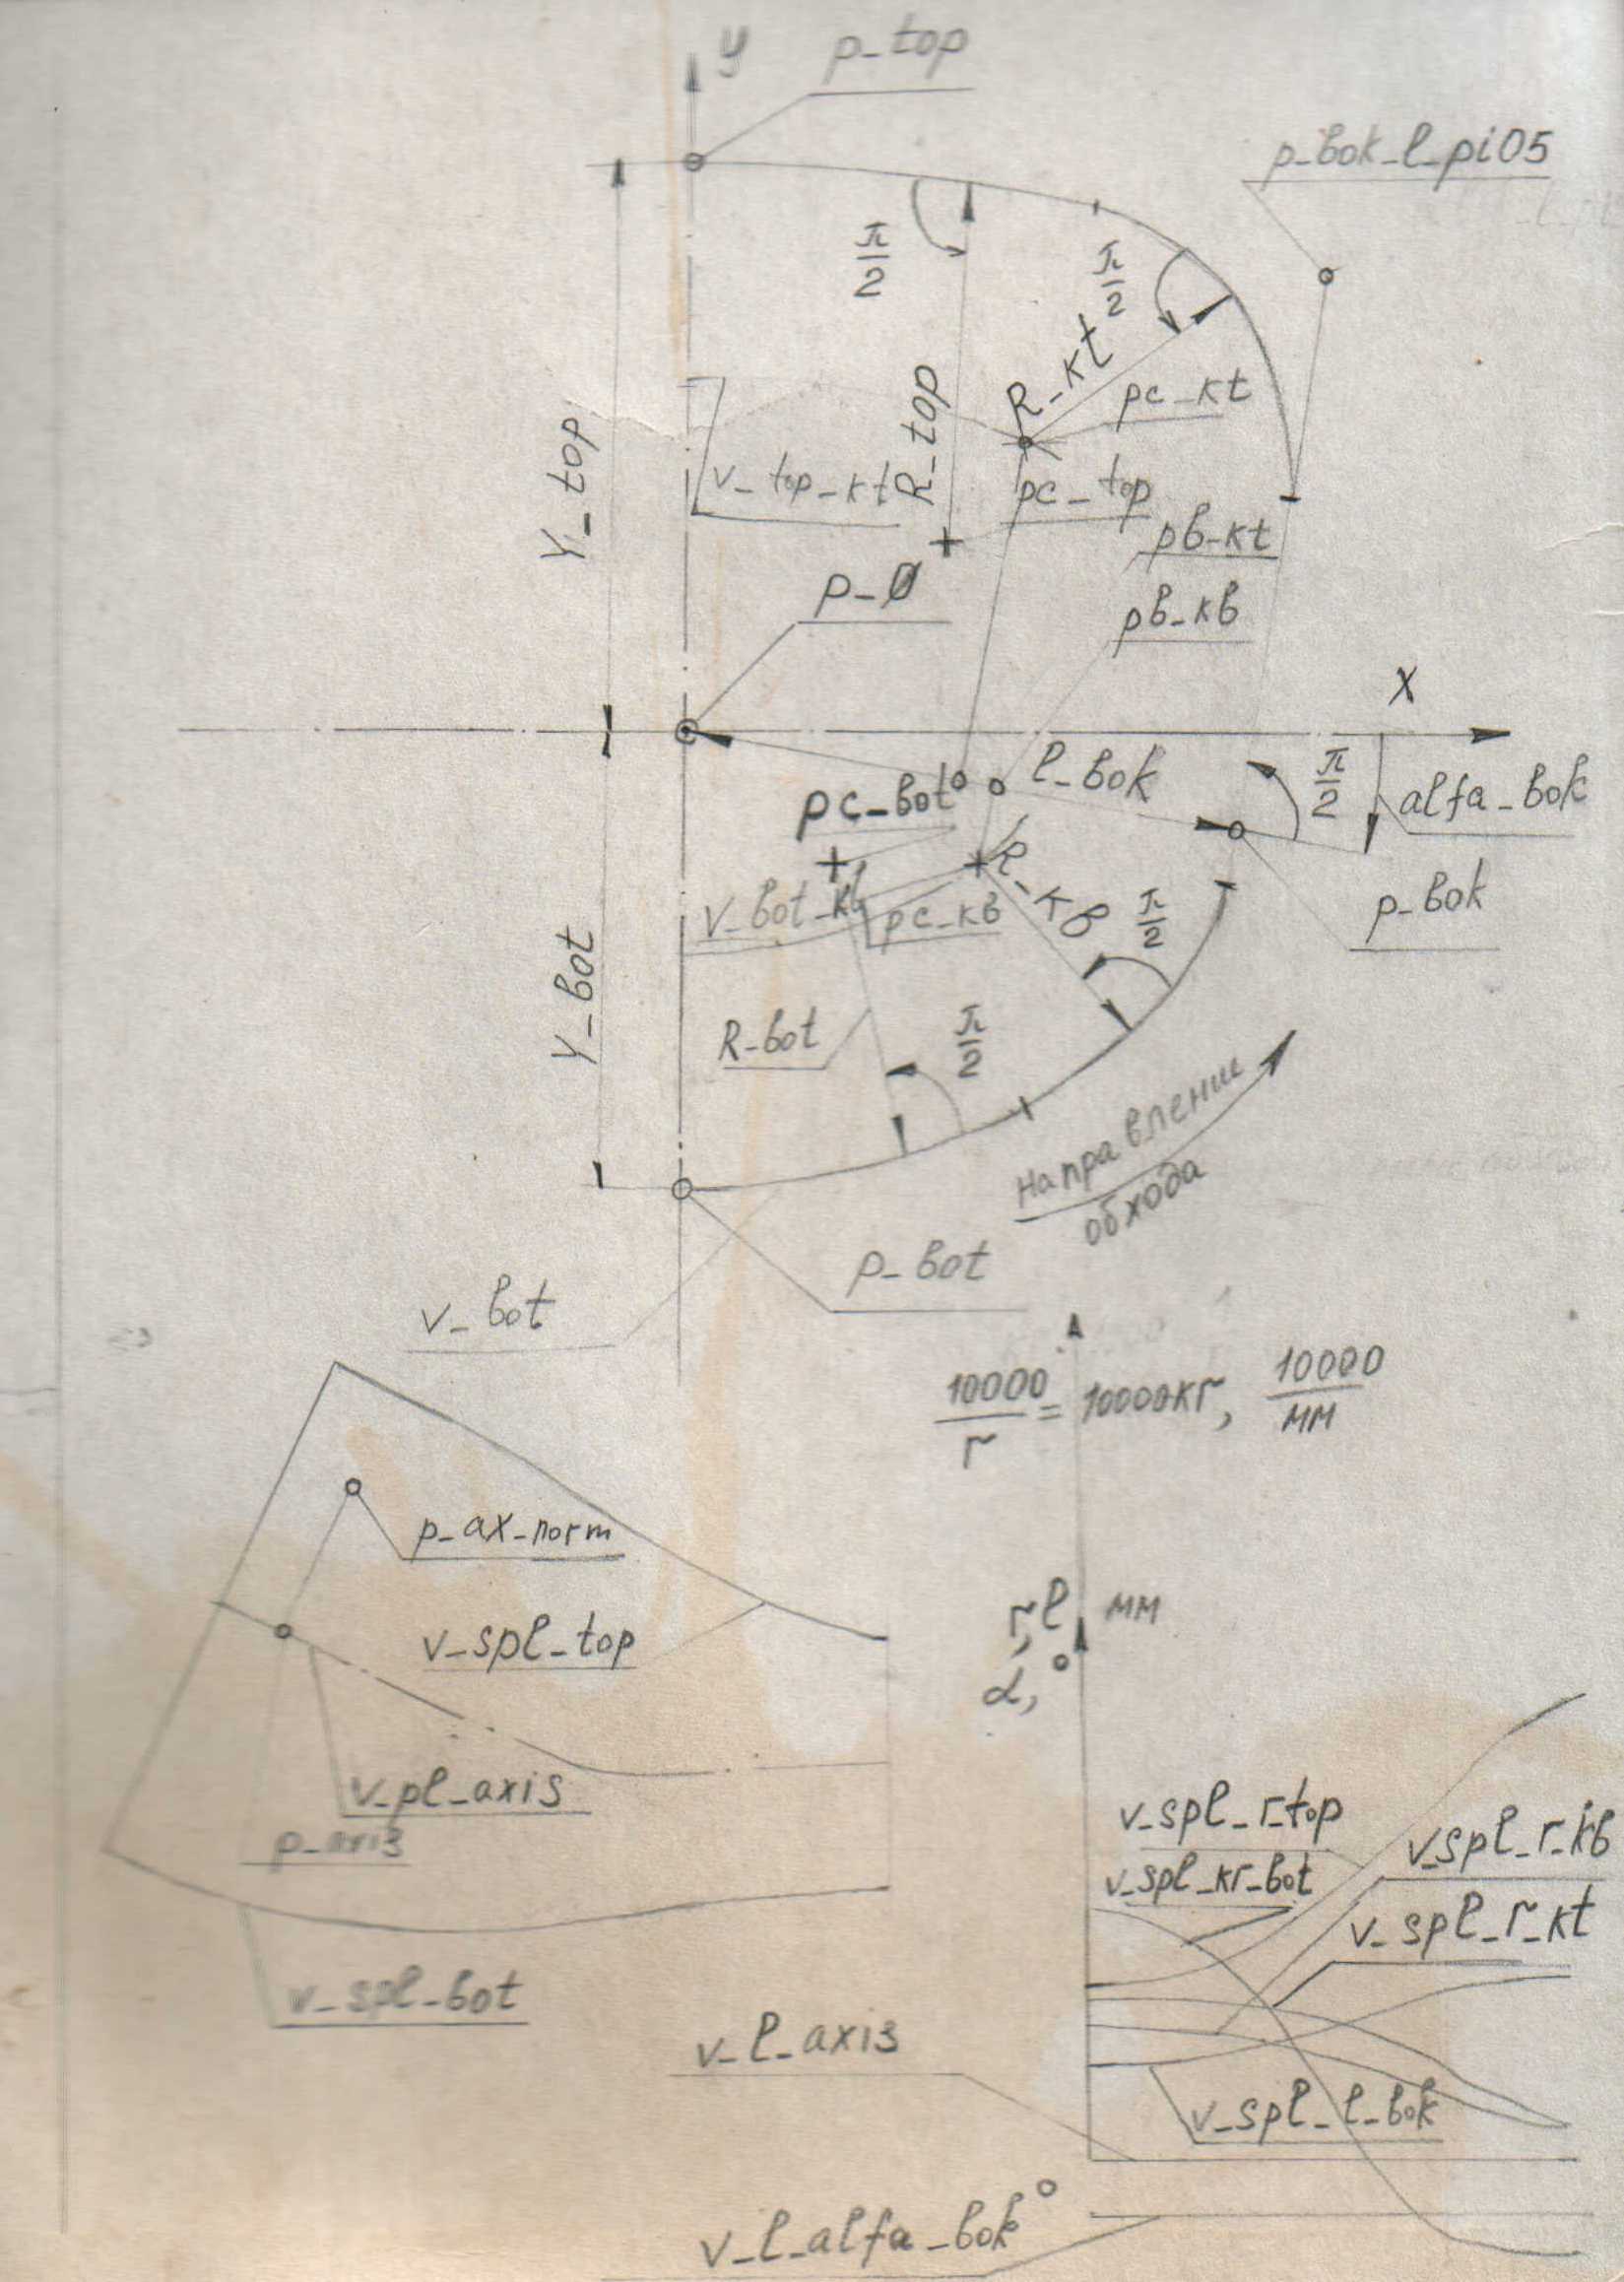 y
p_top
p_bok_l_pi05
π
2
π
2
R_kt
pc_kt
R_top
Y_top
v_top_kt
pc_top
pb_kt
p_0
pb_kb
X
l_bok
π
2
alfa_bok
pc_bot
R_kb
p_bok
v_bot_kb
pc_kb
π
2
Y_bot
R_bot
π
2
Направлении
обхода
p_bot
v_bot
10000
r
= 10000кг,
10000
мм
p_ax_norm
r, l мм
α, °
v_spl_top
v_pl_axis
p_axis
v_spl_r_top
v_spl_r_kb
v_spl_kr_bot
v_spl_r_kt
v_spl_bot
v_l_axis
v_spl_l_bok
v_l_alfa_bok°